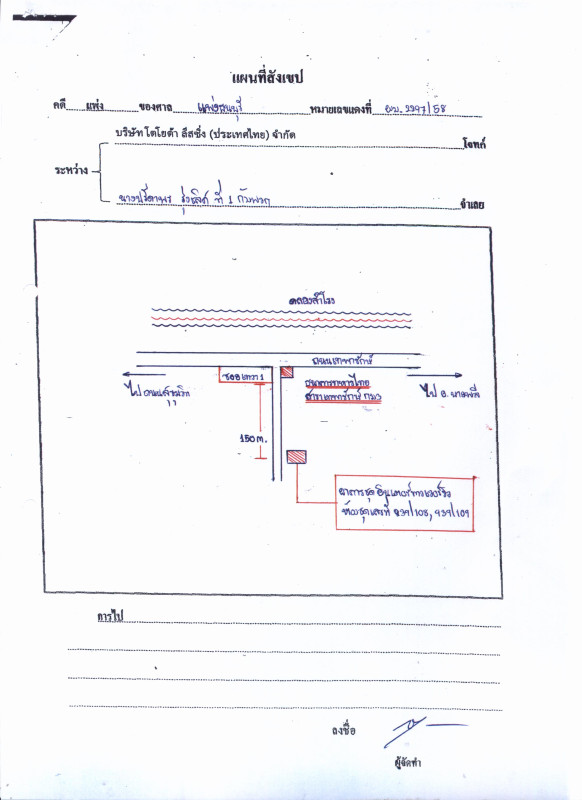 แผนที่สังเขป
คดี แพ่ง ของศาล แพ่งธนบุรี หมายเลขแดงที่ ผบ. 2297/58
บริษัท โตโยต้า ลีสซิ่ง (ประเทศไทย) จำกัด โจทก์
ระหว่าง
ที่ 1 กับพวก จำเลย
คลองสำโรง
ถนนเทพารักษ์
ซอย 1
ไป ถนนสุขุมวิท
ธนาคารทหารไทย
สาขาเทพารักษ์ กม.3
ไป อ. บางพลี
150 m.
อาคารชุด
ห้องชุดเลขที่ 939/108, 939/109
การไป
ลงชื่อ
ผู้จัดทำ